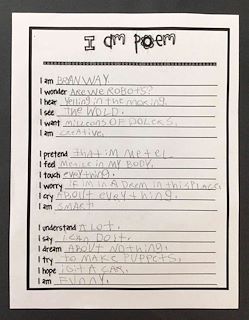 I am poem
I am BRANWAY.
I wonder ARE WE ROBOTS?
I hear Yelling in the moking.
I see THE WOLD.
I want MILLEONS OF DOLERS.
I am CREATIVE.
I pretend that im metel
I feel MeNice IN MY BODY.
I touch everything.
I worry IF IM IN A Drem IN this PLACE.
I cry ABOUT everything.
I am SMART
I understand A LOT.
I say I CAN DO IT.
I dream ABOUT NOTHING.
I try TO MAKE PUPPETS.
I hope I GIT A CAR.
I am FUNNY.